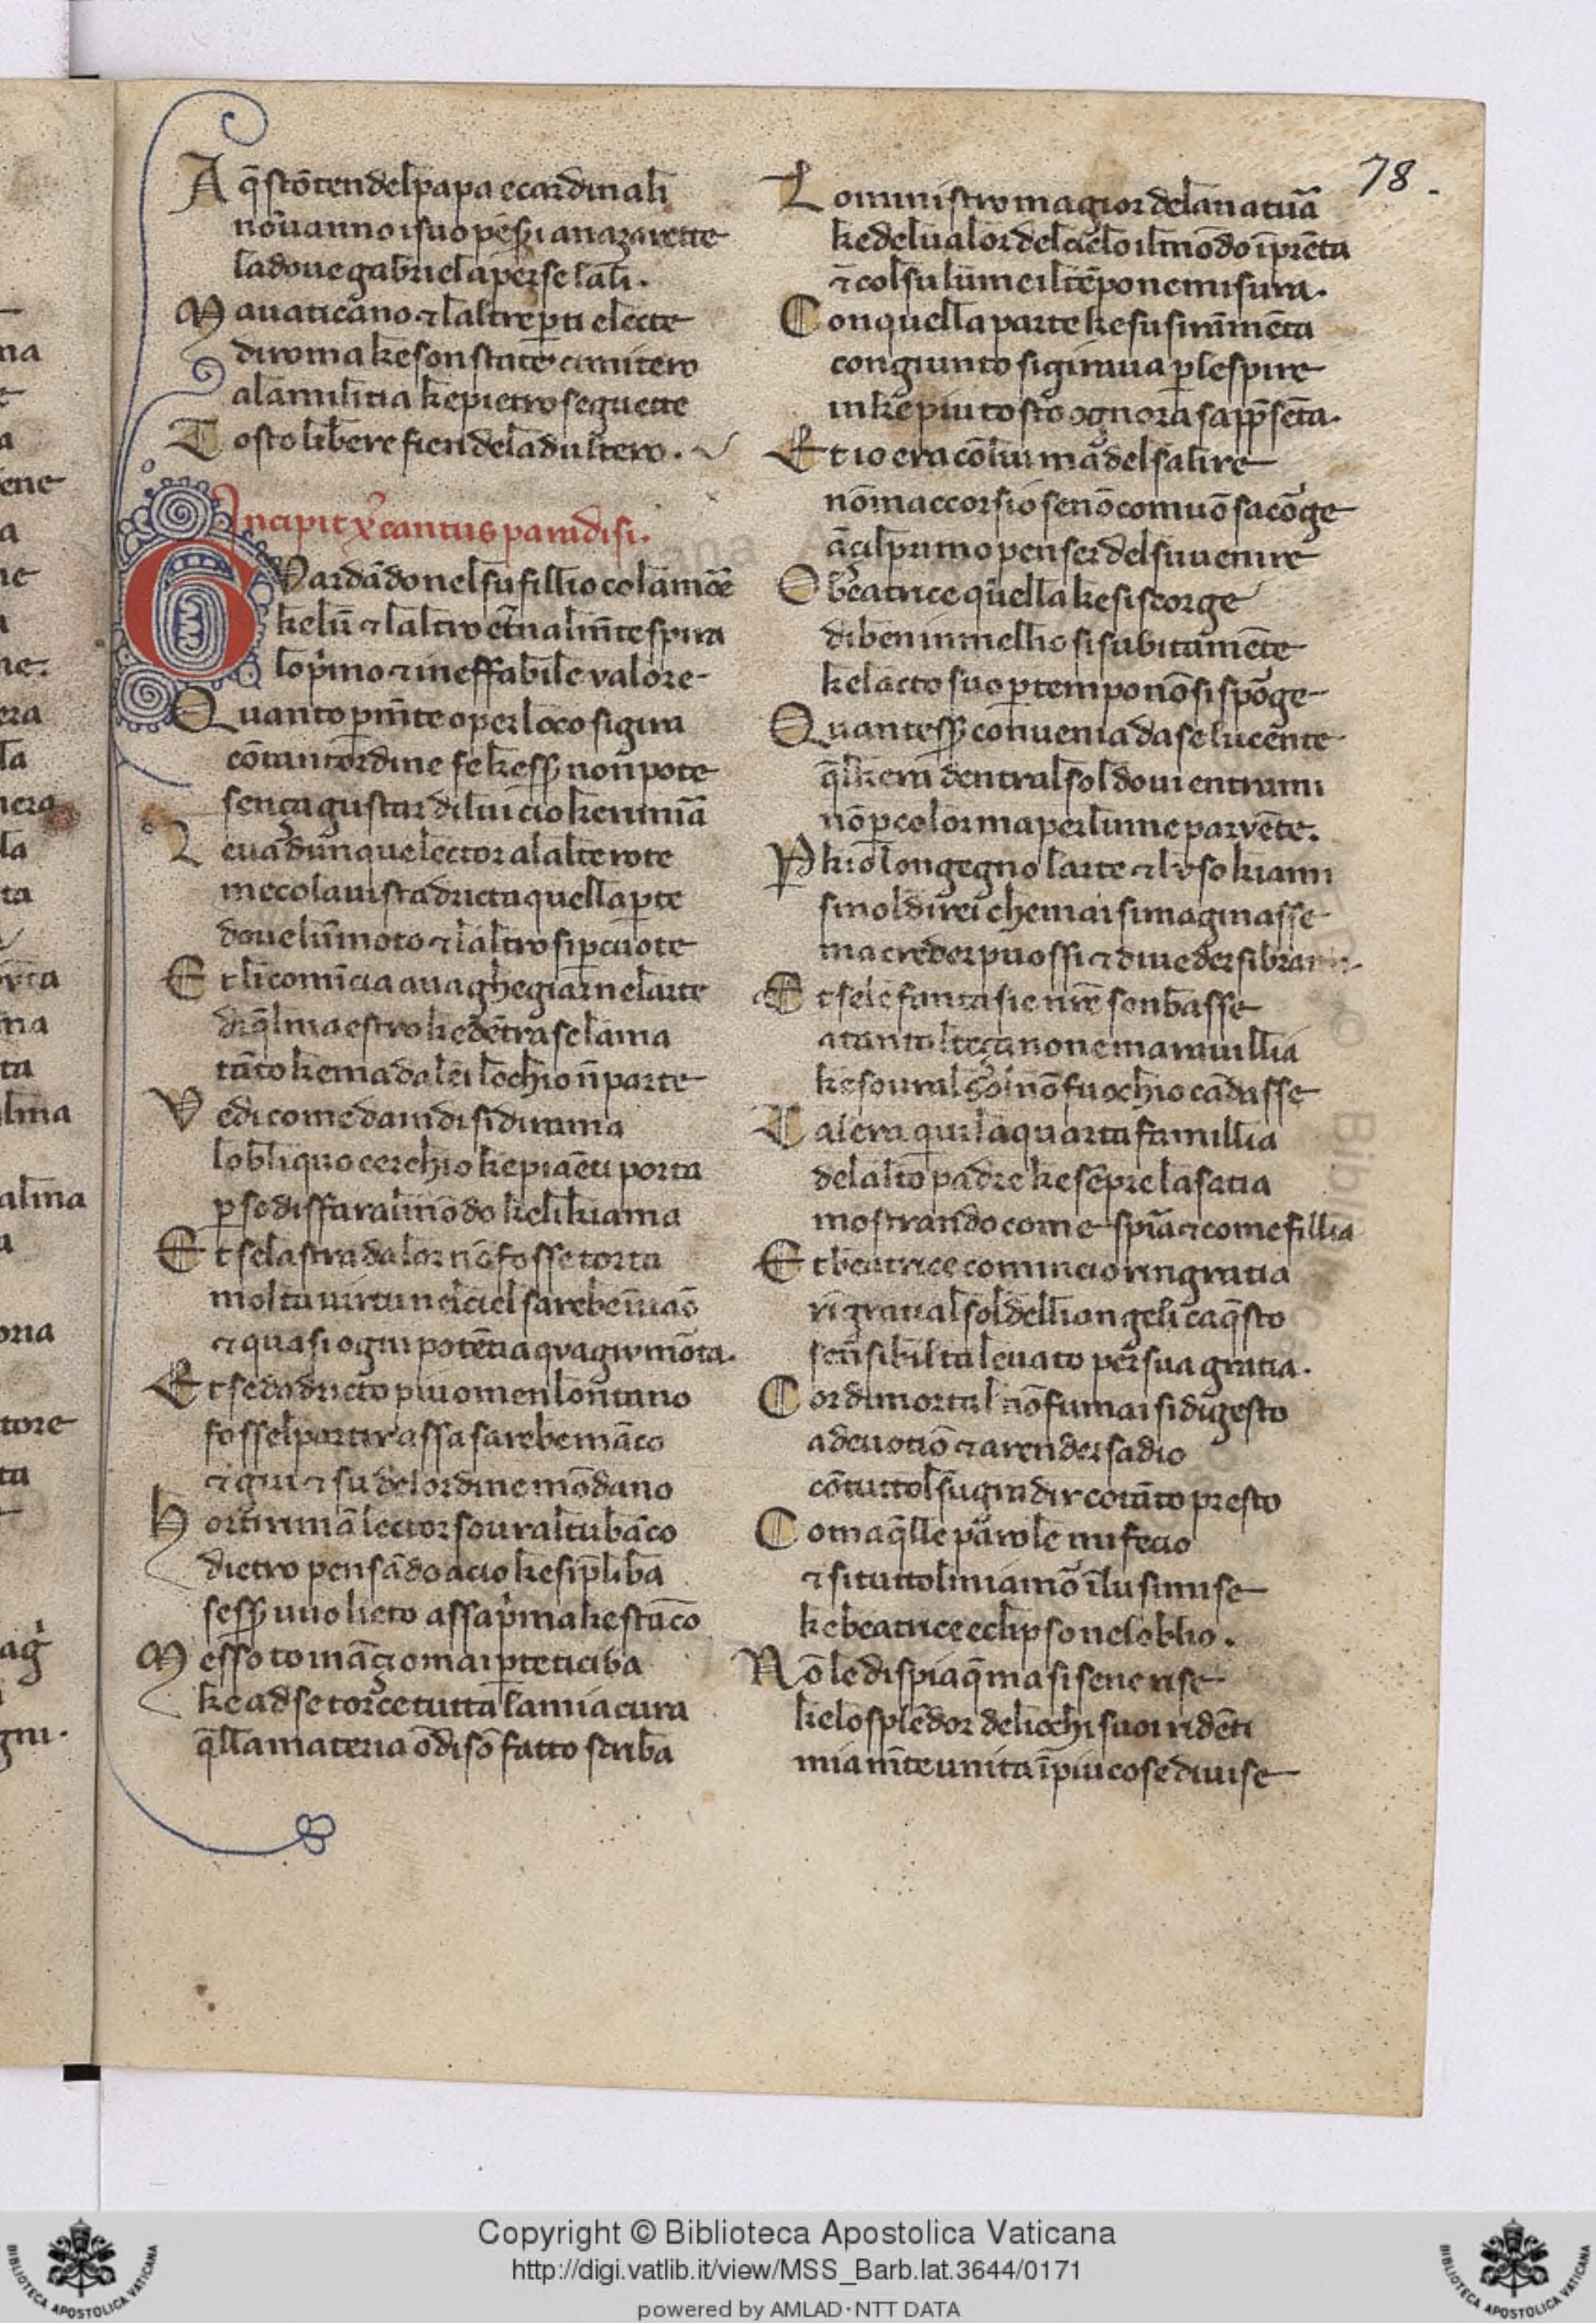 78.
A q̄stōtendelpapa ecardinali
nōuanno isuo pēs̄i anazarette
ladoue gabriel aperse lali.
Mauaticano ⁊ laltre ꝑti electe
diroma keson state cimitero
alamilitia kepietro seguette
Tosto libere fien deladultero.
Incipit x̊ cantus paradisi.
GVardādonelsu fillio colamōe
kelū ⁊ laltro et̄nalm̄te spira
lop̊mo ⁊ ineffabile valore
Quanto ꝑm̄te o per loco sigira
cōtantordine fe kess̄ non pote
sença gustar dilui cio ke rimiā
Leua dunque lector alalte rote
meco lauista dricta quella ꝑte
doue lūmoto ⁊ laltro si ꝑcuote
Et li comīcia auaghegiar nelarte
di q̄l maestro ke dētrase lama
tāto kema dalei lochio n̄ parte
Vedi come da indi sidirama
lobliquo cerchio ke piaēti porta
ꝑ sodisffar almōdo keli kiama
Et sela strada lor nō fosse torta
molta uirtu nel ciel sarebe īuāo
⁊ quasi ogni potētia qua giu mōta.
Et seda dricto piu omen lontano
fossel partir assa sarebe māco
⁊ giu ⁊ su del ordine mōdano
Hor ti rimā lector soural tu bāco
dietro pensādo acio ke si p̄liba
sess̄ uuo lieto assa p̊ma ke stāco
Messo to māçi omai ꝑte ti ciba
ke ad se torce tutta lamia cura
q̄lla materia ōdisō fatto scriba
Lo ministro magior delanatuā
ke delualor del cielo ilmōdo īprēta
⁊ col su lume il tēpo ne misura.
Con quella parte ke su si rāmēta
congiunto si giraua ꝑ le spire
in ke piu tosto ogn ora sapp̄sēta.
Et io era cō lui ma del salire
nō maccorsio se nō comuō sacōge
āçil primo penser del su uenire
O beatrice quella ke si scorge
di ben in mellio si subitamēte
kelacto suo ꝑ tempo nō si spōge
Quantess̄ conuenia da se lucente
q̄l kera dentral sol doui entrami
nō ꝑ color ma per lume parvēte.
Ꝑ kio longegno larte ⁊ luso kiami
si nol direi che mai simaginasse
ma creder puossi ⁊ diueder si brami.
Et sele fantasie nr̄e son basse
a tanta lteça non e marauillia
ke soural sol nō fu ochio cādasse
Tal era quiui la quarta famillia
delalto padre ke sēpre la satia
mostrando come spira ⁊ come fillia
Et beatrice comincio ringratia
rīgratial sol delli angeli ca q̄sto
sensibil ta leuato per sua gratia.
Cor di mortal nō fu mai si digesto
a deuotiō ⁊ a rendersa dio
cō tuttol su gradir cotāto presto
Coma q̄lle parole mi fecio
⁊ si tuttol mi amō ī lu si mise
ke beatrice eclipso nel oblio.
Nō le dispiaq̄ ma si se ne rise
kelo splēdor deliochi suoi ridēti
mia mēte unita ī piu cose diuise
Copyright © Biblioteca Apostolica Vaticana
http://digi.vatlib.it/view/MSS_Barb.lat.3644/0171
powered by AMLAD·NTT DATA